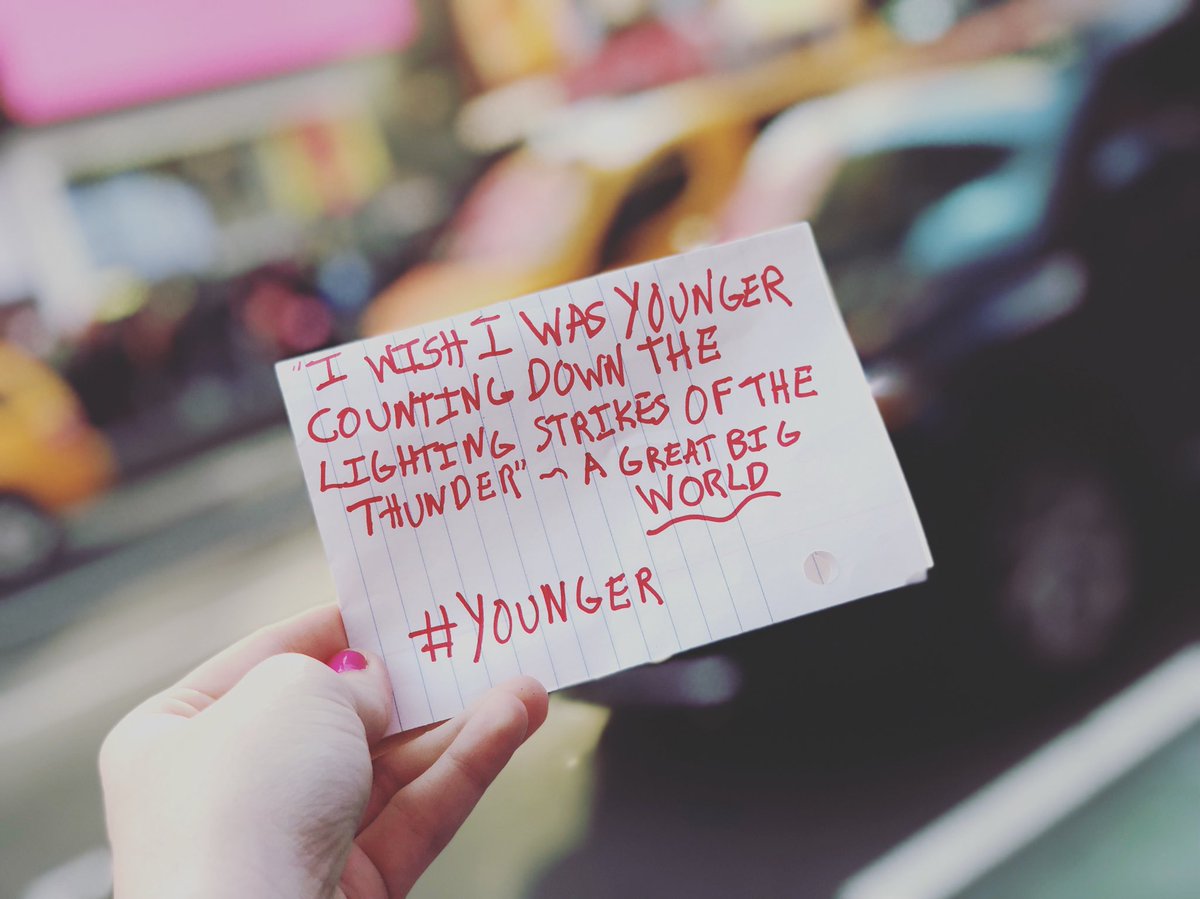 "I WISH I WAS YOUNGER
COUNTING DOWN THE
LIGHTING STRIKES OF THE
THUNDER" ~ A GREAT BIG
WORLD
#YOUNGER